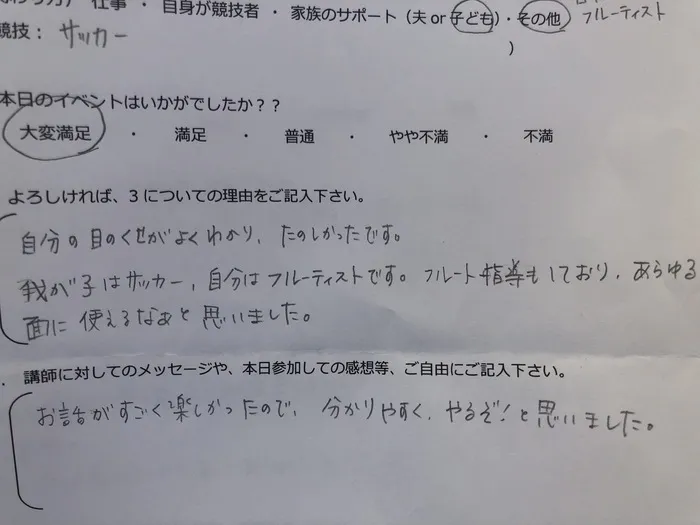 仕事 ・ 自身が競技者 ・ 家族のサポート（夫 or 子ども）・ その他 フルーティスト
競技： サッカー
）
本日のイベントはいかがでしたか？？
大変満足 ・ 満足 ・ 普通 ・ やや不満 ・ 不満
よろしければ、3 についての理由をご記入下さい。
自分の目のくせがよくわかり、たのしかったです。
我が子はサッカー、自分はフルーティストです。フルート指導もしており、あらゆる
面に使えるなぁと思いました。
講師に対してのメッセージや、本日参加しての感想等、ご自由にご記入下さい。
お話がすごく楽しかったので、分かりやすく、やるぞ！と思いました。